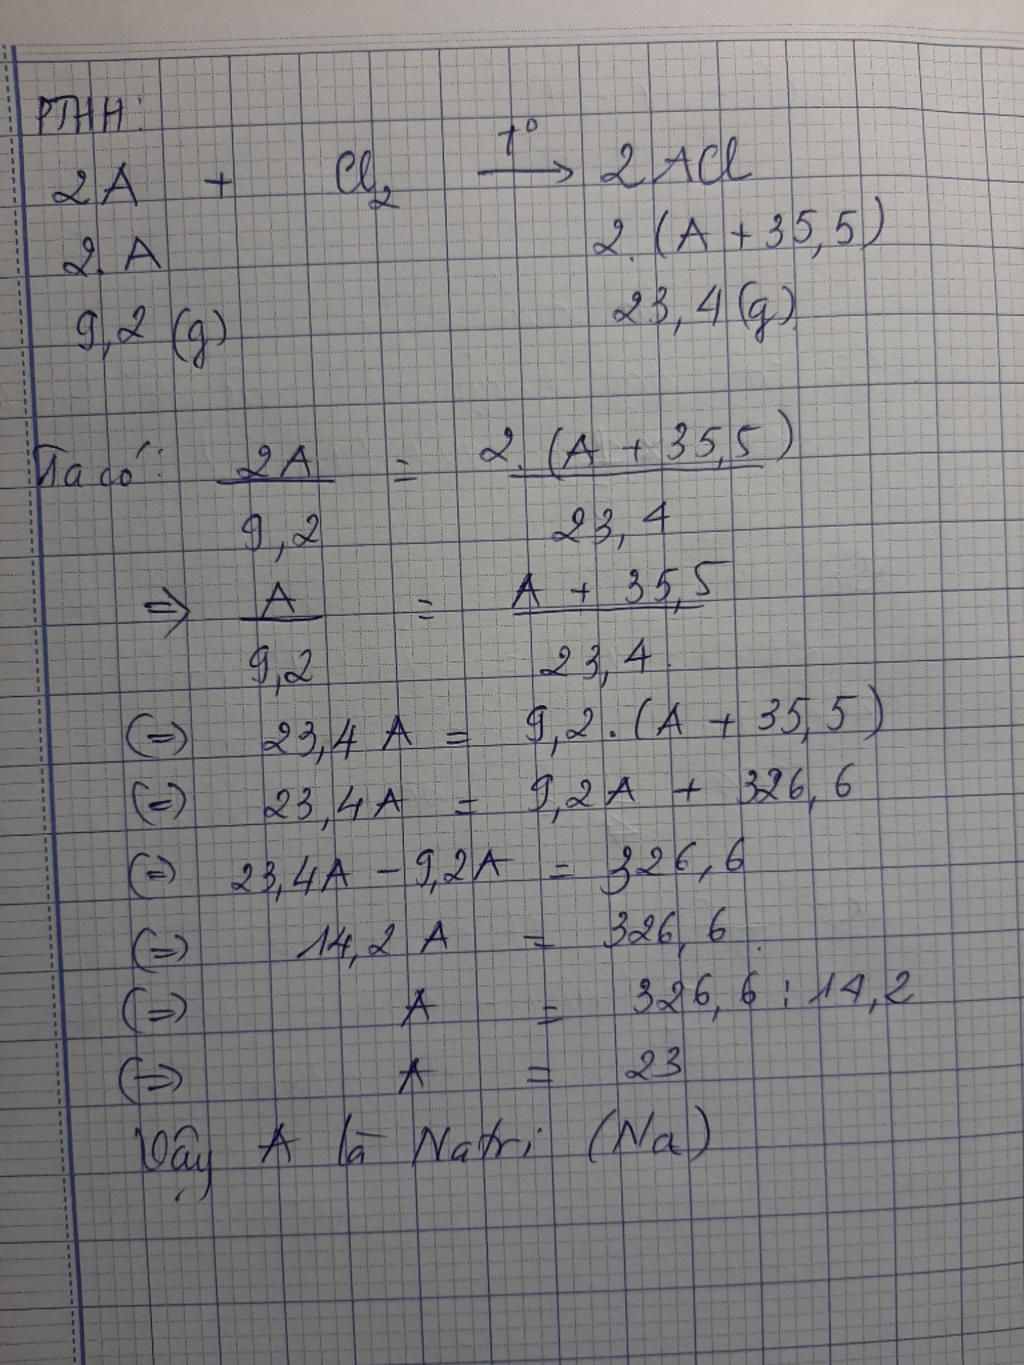 PTHH:
2A + Cl₂ —t°→ 2ACl
2.A 2.(A + 35,5)
9,2 (g) 23,4 (g)
Ta có: 2A/9,2 = 2.(A + 35,5)/23,4
=> A/9,2 = A + 35,5/23,4
(=) 23,4 A = 9,2.(A + 35,5)
(=) 23,4A = 9,2A + 326,6
(=) 23,4A - 9,2A = 326,6
(=) 14,2 A = 326,6
(=) A = 326,6 : 14,2
(=) A = 23
Vậy A là Natri (Na)